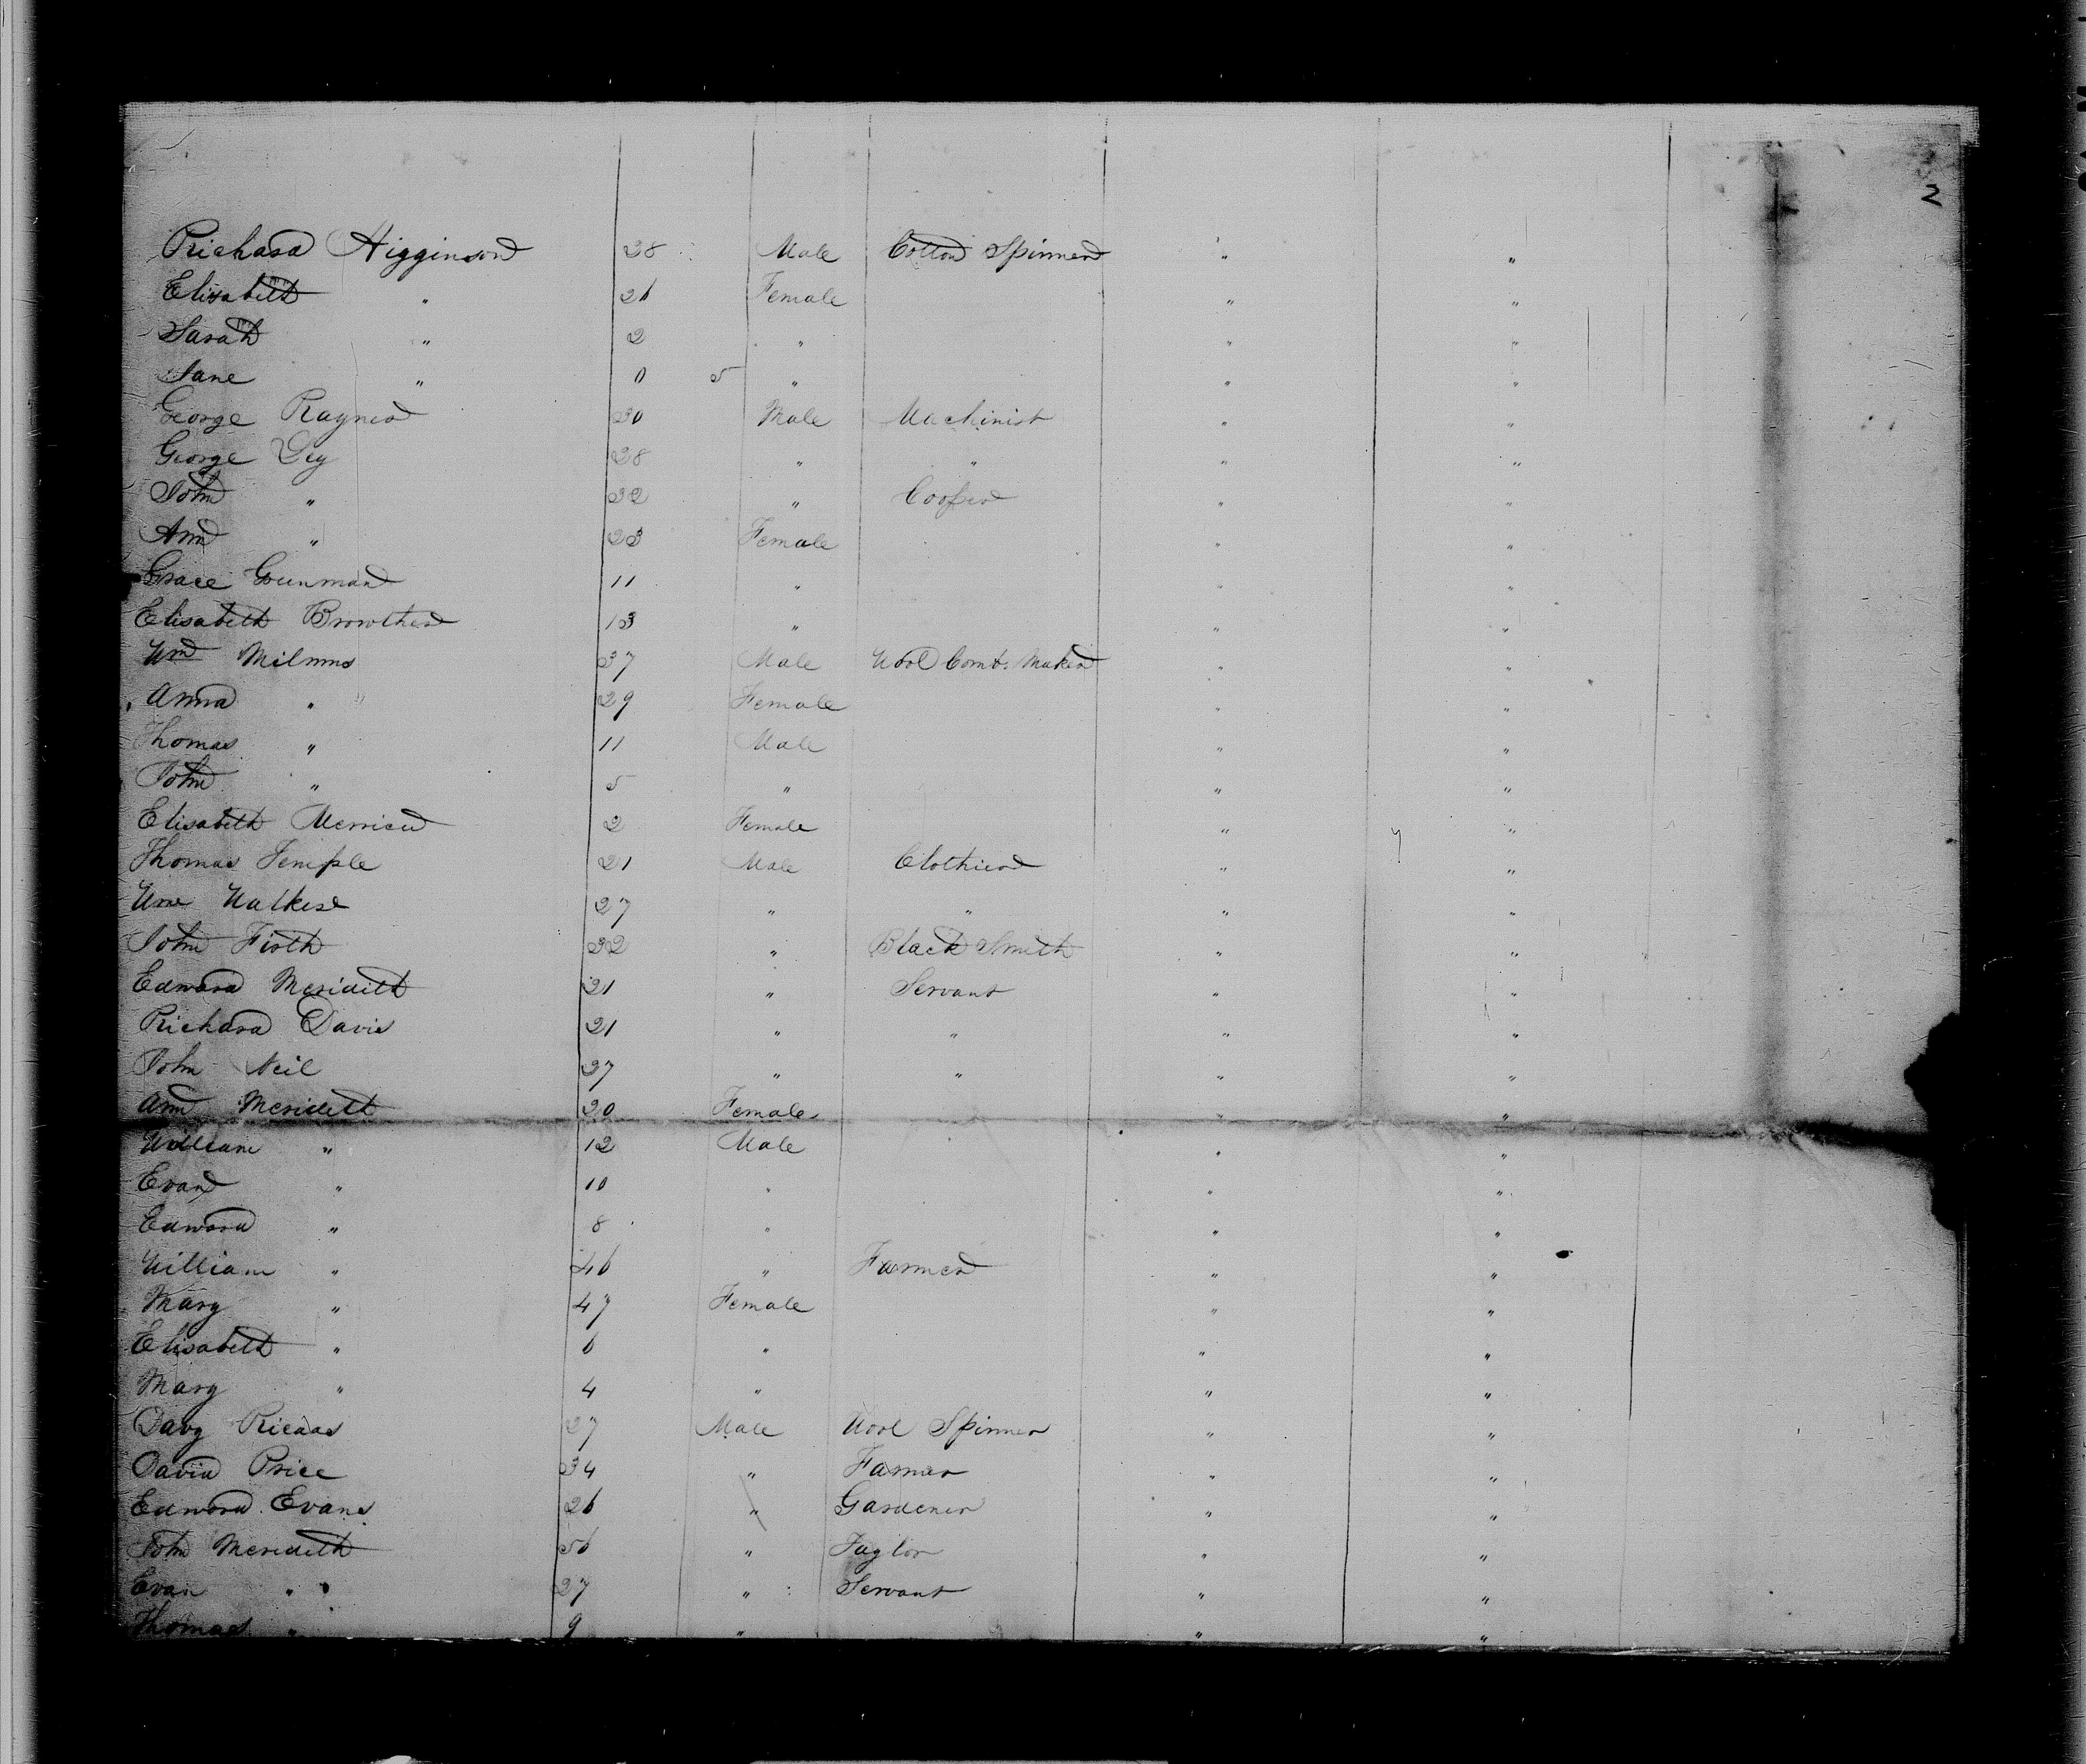 2
Richard Higginson 28 Male Cotton Spinner " "
Elisabeth " 26 Female " "
Sarah " 2 " " "
Jane " 0 5 " " "
George Rayner 30 Male Machinist " "
George Ley 28 " " " "
John " 32 " Cooper " "
Ann " 23 Female " "
Grace 11 " " "
Elisabeth Browther 13 " " "
Wm 37 Male Wool Comb Maker " "
Anna " 29 Female " "
Thomas " 11 Male " "
John " 5 " " "
Elisabeth 2 Female " "
Thomas Temple 21 Male Clothier " "
Wm Walker 27 " " " "
John Firth 32 " Black Smith " "
Edward Meridith 21 " Servant " "
Richard Davis 21 " " " "
John Neil 27 " " " "
Ann Merideth 20 Female " "
William " 12 Male " "
Evan " 10 " " "
Edward " 8 " " "
William " 46 " Farmer " "
Mary " 47 Female " "
Elisabeth " 6 " " "
Mary " 4 " " "
Davy 27 Male Wool Spinner " "
David Price 34 " Farmer " "
Edward Evans 26 " Gardener " "
John Merideth 56 " Taylor " "
Evan " 27 " Servant " "
Thomas " 9 " " "